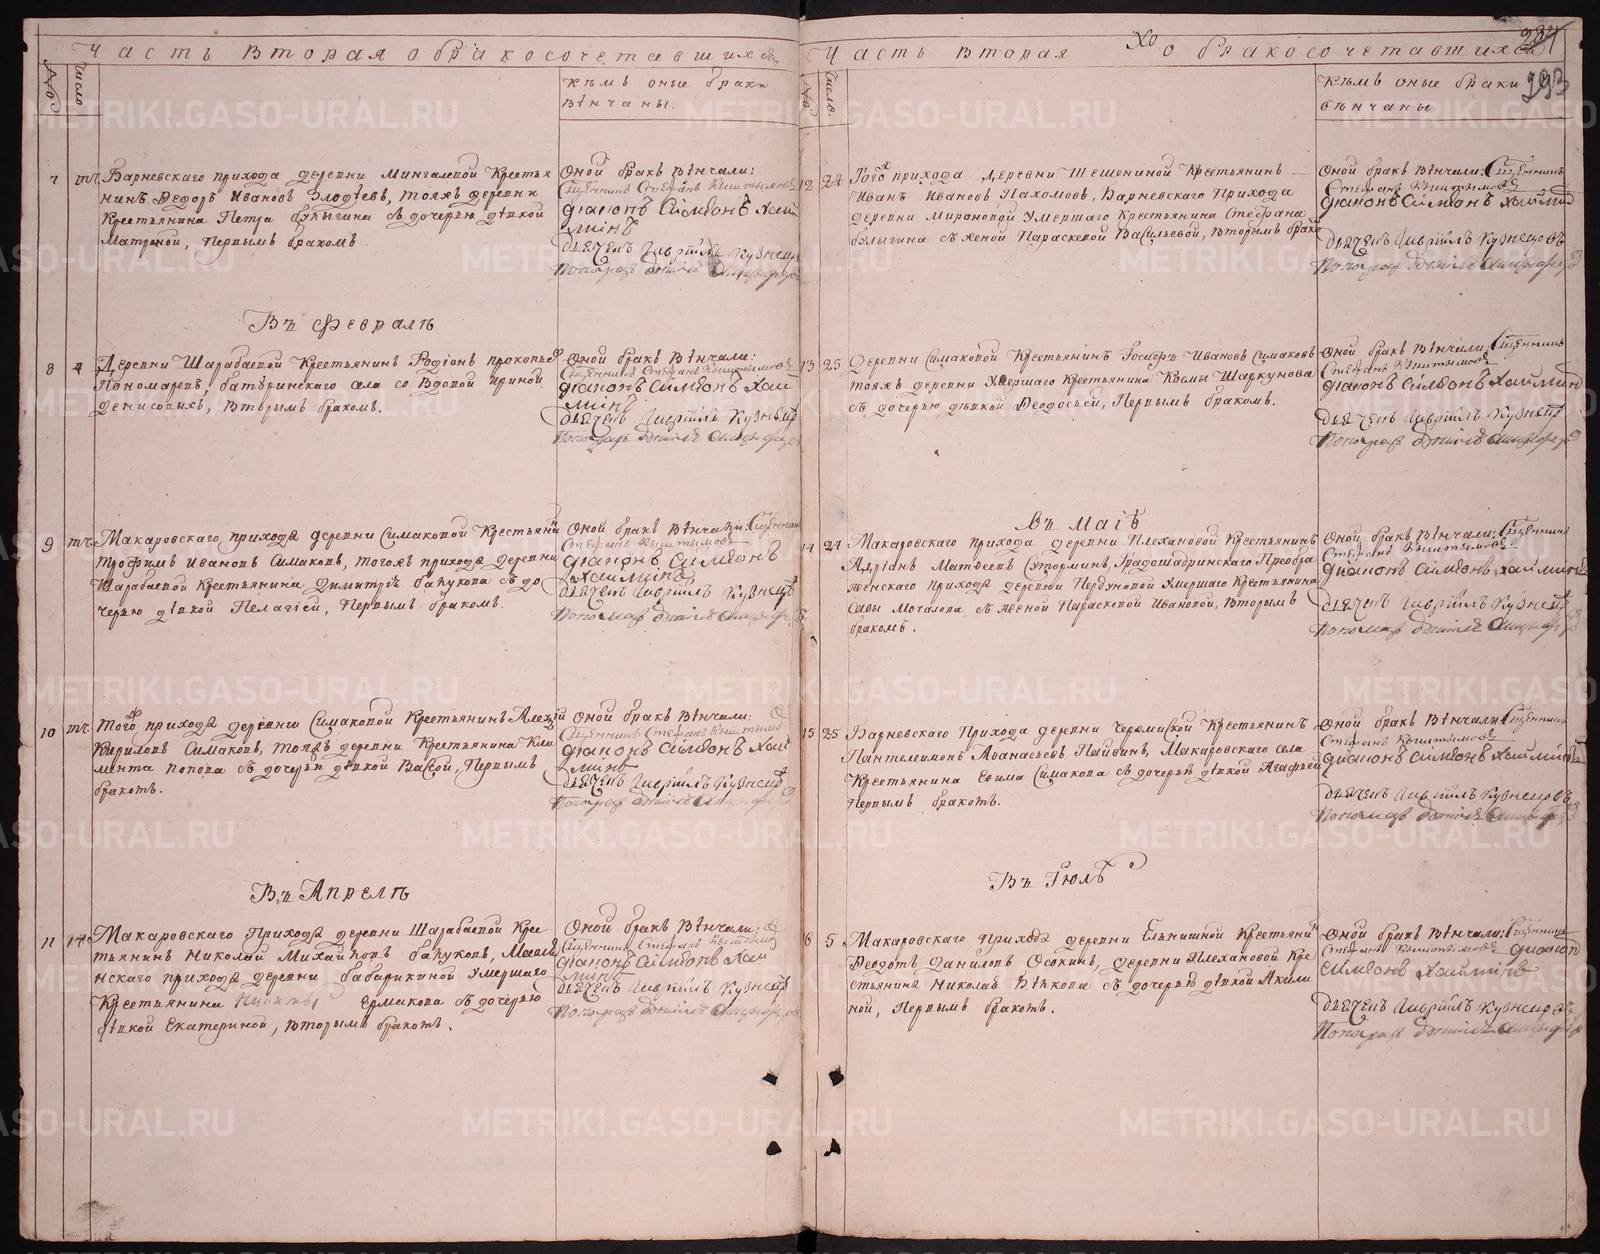 Часть вторая о бракосочетавшихся
№
Число
Кѣмъ оные браки
вѣнчаны.
7 тч. Барневскаго прихода деревни Мингалевой Крестья
нинъ Ѳедоръ Ивановъ Злодѣевъ, тояжъ деревни
Крестьянина Петра Булыгина съ дочерью дѣвкой
Матреной, Первымъ бракомъ.
Оной бракъ вѣнчали:
Священникъ Стефанъ
Діаконъ Симеонъ Хай
минъ
Дьячекъ Гавріилъ Кузнецо
Пономарь
Въ Февралѣ
8 4 Деревни Шарабаевой Крестьянинъ Родіонъ Прокопьев
Пономаревъ, Батуринскаго села со вдовой Ириной
Денисовыхъ, вторымъ бракомъ.
Оной бракъ вѣнчали:
Священникъ Стефанъ
Діаконъ Симеонъ Хай
минъ
Дьячекъ Гавріилъ Кузнецо
Пономарь
9 тч. Макаровскаго прихода деревни Симаковой Крестьяни
Трофимъ Ивановъ Симаковъ, тогожъ прихода деревни
Шарабаевой Крестьянина Димитрія съ до
черью дѣвкой Пелагіей, Первымъ бракомъ.
Оной бракъ вѣнчали: Священникъ
Стефанъ
Діаконъ Симеонъ
Хайминъ
Дьячекъ Гавріилъ Кузнецо
Пономарь
10 тч. Того прихода деревни Симаковой Крестьянинъ Алексѣй
Кириловъ Симаковъ, тояжъ деревни Крестьянина Кли
мента Попова съ дочерью дѣвкой Васой, Первымъ
бракомъ.
Оной бракъ вѣнчали:
Священникъ Стефанъ
Діаконъ Симеонъ Хай
минъ
Дьячекъ Гавріилъ Кузнецо
Пономарь
Въ Апрелѣ
11 14 Макаровскаго Прихода деревни Шарабаевой Кре-
тьянинъ Николай Михайловъ
нскаго прихода деревни Бабарикиной Умершаго
Крестьянина Никиты Ермакова съ дочерью
дѣвкой Екатериной, вторымъ бракомъ.
Оной бракъ вѣнчали:
Священникъ Стефанъ
Діаконъ Симеонъ Хай
минъ
Дьячекъ Гавріилъ Кузнецо
Пономарь
Часть вторая о бракосочетавшихся
293
№
Число
Кѣмъ оные браки
вѣнчаны
12 24 Того прихода Деревни Шешениной Крестьянинъ
Иванъ Ивановъ Пахомовъ, Барневскаго Прихода
деревни Мироновой Умершаго Крестьянина Стефана
Булыгина съ женой Параскевой Васильевой, вторымъ брако
Оной бракъ вѣнчали: Священникъ
Стефанъ
Діаконъ Симеонъ Хаймин
Дьячекъ Гавріилъ Кузнецовъ
Пономарь
13 25 Деревни Симаковой Крестьянинъ Іосифъ Ивановъ Симаковъ
тояжъ деревни Умершаго Крестьянина Козмы Шаркунова
съ дочерью дѣвкой Ѳеодосьей, Первымъ бракомъ.
Оной бракъ вѣнчали: Священникъ
Стефанъ
Діаконъ Симеонъ Хаймин
Дьячекъ Гавріилъ Кузнецо
Пономарь
въ Маіѣ
14 21 Макаровскаго прихода деревни Плехановой Крестьянинъ
Адріанъ Матвеевъ Стоминъ, Градошадринскаго Преобра
женскаго прихода деревни Умершаго Крестьянина
Савы Мочалова съ женой Параскевой Ивановой, вторымъ
бракомъ.
Оной бракъ вѣнчали: Священникъ
Стефанъ
Діаконъ Симеонъ Хайминъ
Дьячекъ Гавріилъ Кузнецо
Пономарь
15 25 Барневскаго Прихода деревни Черемиской Крестьянинъ
Пантелемонъ Аѳанасьевъ Пайвинъ, Макаровскаго села
Крестьянина Симакова съ дочерью дѣвкой Агафьей
Первымъ бракомъ.
Оной бракъ вѣнчали: Священникъ
Стефанъ
Діаконъ Симеонъ Хайминъ
Дьячекъ Гавріилъ Кузнецовъ
Пономарь
Въ Іюлѣ
16 5 Макаровскаго прихода деревни Ельнишной Крестьяни
Ѳедотъ Даниловъ Осокинъ, деревни Плехановой Кре
стьянина Николая съ дочерью дѣвкой Акили
ной, Первымъ бракомъ.
Оной бракъ вѣнчали: Священникъ
Стефанъ Діакон
Симеонъ Хайминъ
Дьячекъ Гавріилъ Кузнецовъ
Пономарь
METRIKI.GASO-URAL.RU